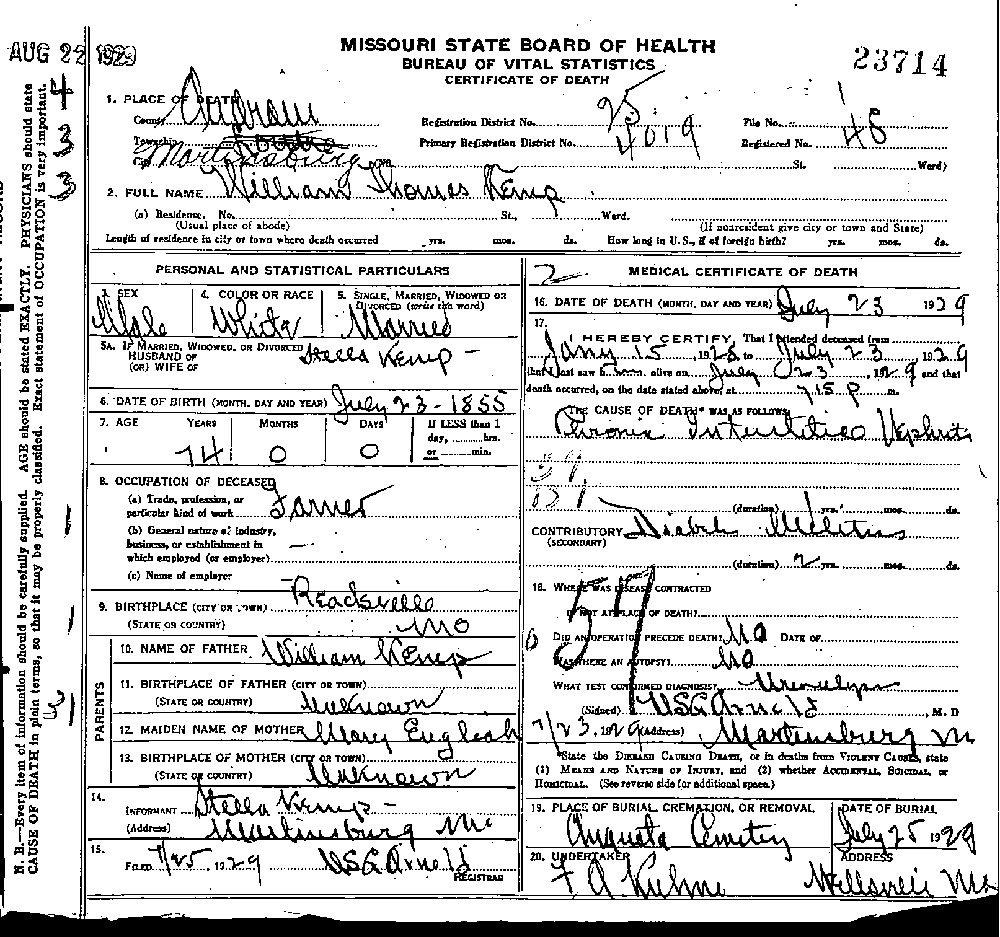 AUG 22 1929
MISSOURI STATE BOARD OF HEALTH
BUREAU OF VITAL STATISTICS
CERTIFICATE OF DEATH
23714
1. PLACE OF DEATH
County Audrain
Registration District No. 25
File No.
Township
Primary Registration District No. 4019
Registered No. 48
City Martinsburg
St. Ward)
2. FULL NAME William Thomas Kemp
(a) Residence, No. St., Ward.
(Usual place of abode) (If nonresident give city or town and State)
Length of residence in city or town where death occurred yrs. mos. ds. How long in U.S., if of foreign birth? yrs. mos. ds.
PERSONAL AND STATISTICAL PARTICULARS
3. SEX Male
4. COLOR OR RACE White
5. SINGLE, MARRIED, WIDOWED OR DIVORCED (write the word) Married
5A. IF MARRIED, WIDOWED, OR DIVORCED
HUSBAND OF Stella Kemp
(OR) WIFE OF
6. DATE OF BIRTH (MONTH, DAY AND YEAR) July 23 - 1855
7. AGE YEARS MONTHS DAYS If LESS than 1 day, hrs. or min.
74 0 0
8. OCCUPATION OF DECEASED
(a) Trade, profession, or particular kind of work Farmer
(b) General nature of industry, business, or establishment in which employed (or employer) —
(c) Name of employer
9. BIRTHPLACE (CITY OR TOWN) Readsville
(STATE OR COUNTRY) Mo
PARENTS
10. NAME OF FATHER William Kemp
11. BIRTHPLACE OF FATHER (CITY OR TOWN)
(STATE OR COUNTRY) Unknown
12. MAIDEN NAME OF MOTHER Mary English
13. BIRTHPLACE OF MOTHER (CITY OR TOWN)
(STATE OR COUNTRY) Unknown
14. INFORMANT Stella Kemp -
(Address) Martinsburg Mo
15. FILED 7/25, 1929 REGISTRAR
2 MEDICAL CERTIFICATE OF DEATH
16. DATE OF DEATH (MONTH, DAY AND YEAR) July 23 1929
17.
I HEREBY CERTIFY, That I attended deceased from
Jany 15, 1928 to July 23 1929
that I last saw him alive on July 23, 1929 and that
death occurred, on the date stated above, at 7.15 P m.
THE CAUSE OF DEATH* WAS AS FOLLOWS:
Chronic Interstitial Nephritis
131
(duration) 1 yrs. mos. ds.
CONTRIBUTORY Diabetes Mellitus
(SECONDARY)
(duration) 2 yrs. mos. ds.
18. WHERE WAS DISEASE CONTRACTED
IF NOT AT PLACE OF DEATH?
57
DID AN OPERATION PRECEDE DEATH? No DATE OF
WAS THERE AN AUTOPSY? No
WHAT TEST CONFIRMED DIAGNOSIS? Urinalysis
(Signed) , M. D
7/23, 1929 (Address) Martinsburg M
*State the DISEASE CAUSING DEATH, or in deaths from VIOLENT CAUSES, state
(1) MEANS AND NATURE OF INJURY, and (2) whether ACCIDENTAL, SUICIDAL, or
HOMICIDAL. (See reverse side for additional space.)
19. PLACE OF BURIAL, CREMATION, OR REMOVAL DATE OF BURIAL
Augusta Cemetery July 25 1929
20. UNDERTAKER ADDRESS
F A Kuhne Wellsville Mo
N. B.—Every item of information should be carefully supplied. AGE should be stated EXACTLY. PHYSICIANS should state
CAUSE OF DEATH in plain terms, so that it may be properly classified. Exact statement of OCCUPATION is very important.
4
3
3